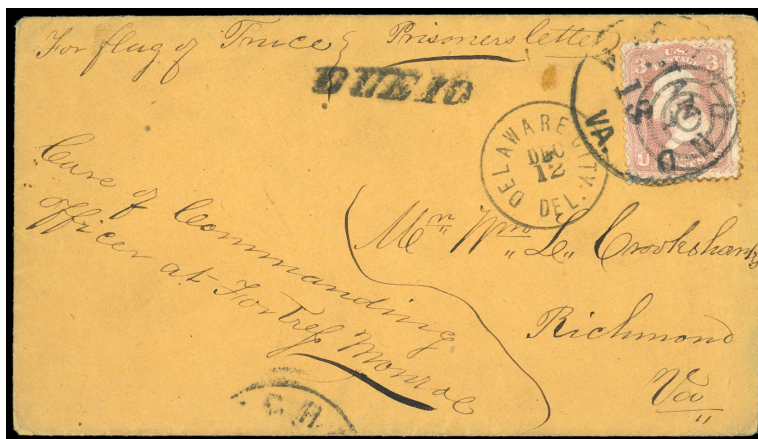 For flag of Truce & Prisoners letter
DUE 10
DELAWARE CITY. DEL.
DEC
12
VA.
U.S.
3 3
U
Care of Commanding
officer at Fortress Monroe
Mr Wm L. Crookshanks
Richmond
Va